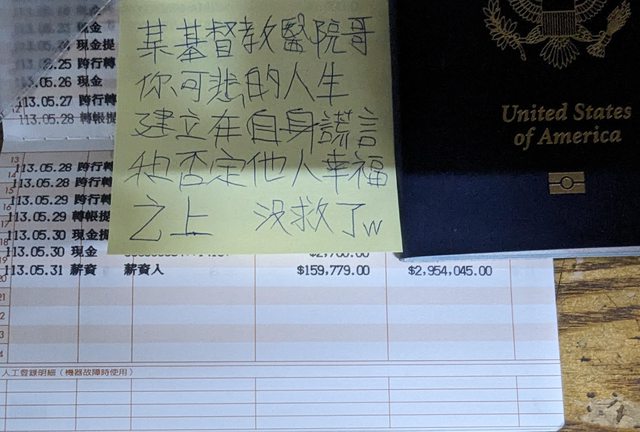 某基督教醫院哥
你可悲的人生
建立在自身謊言
和否定他人幸福
之上 沒救了w
United States
of America
現金提
.25 跨行轉
05.26 現金
113.05.27 跨行轉
113.05.28 轉帳提
113.05.28 跨行轉
113.05.28 跨行轉
113.05.29 跨行轉
113.05.29 轉帳提
113.05.30 現金提
113.05.30 現金
113.05.31 薪資 薪資入 $159,779.00 $2,954,045.00
人工登錄明細（機器故障時使用）